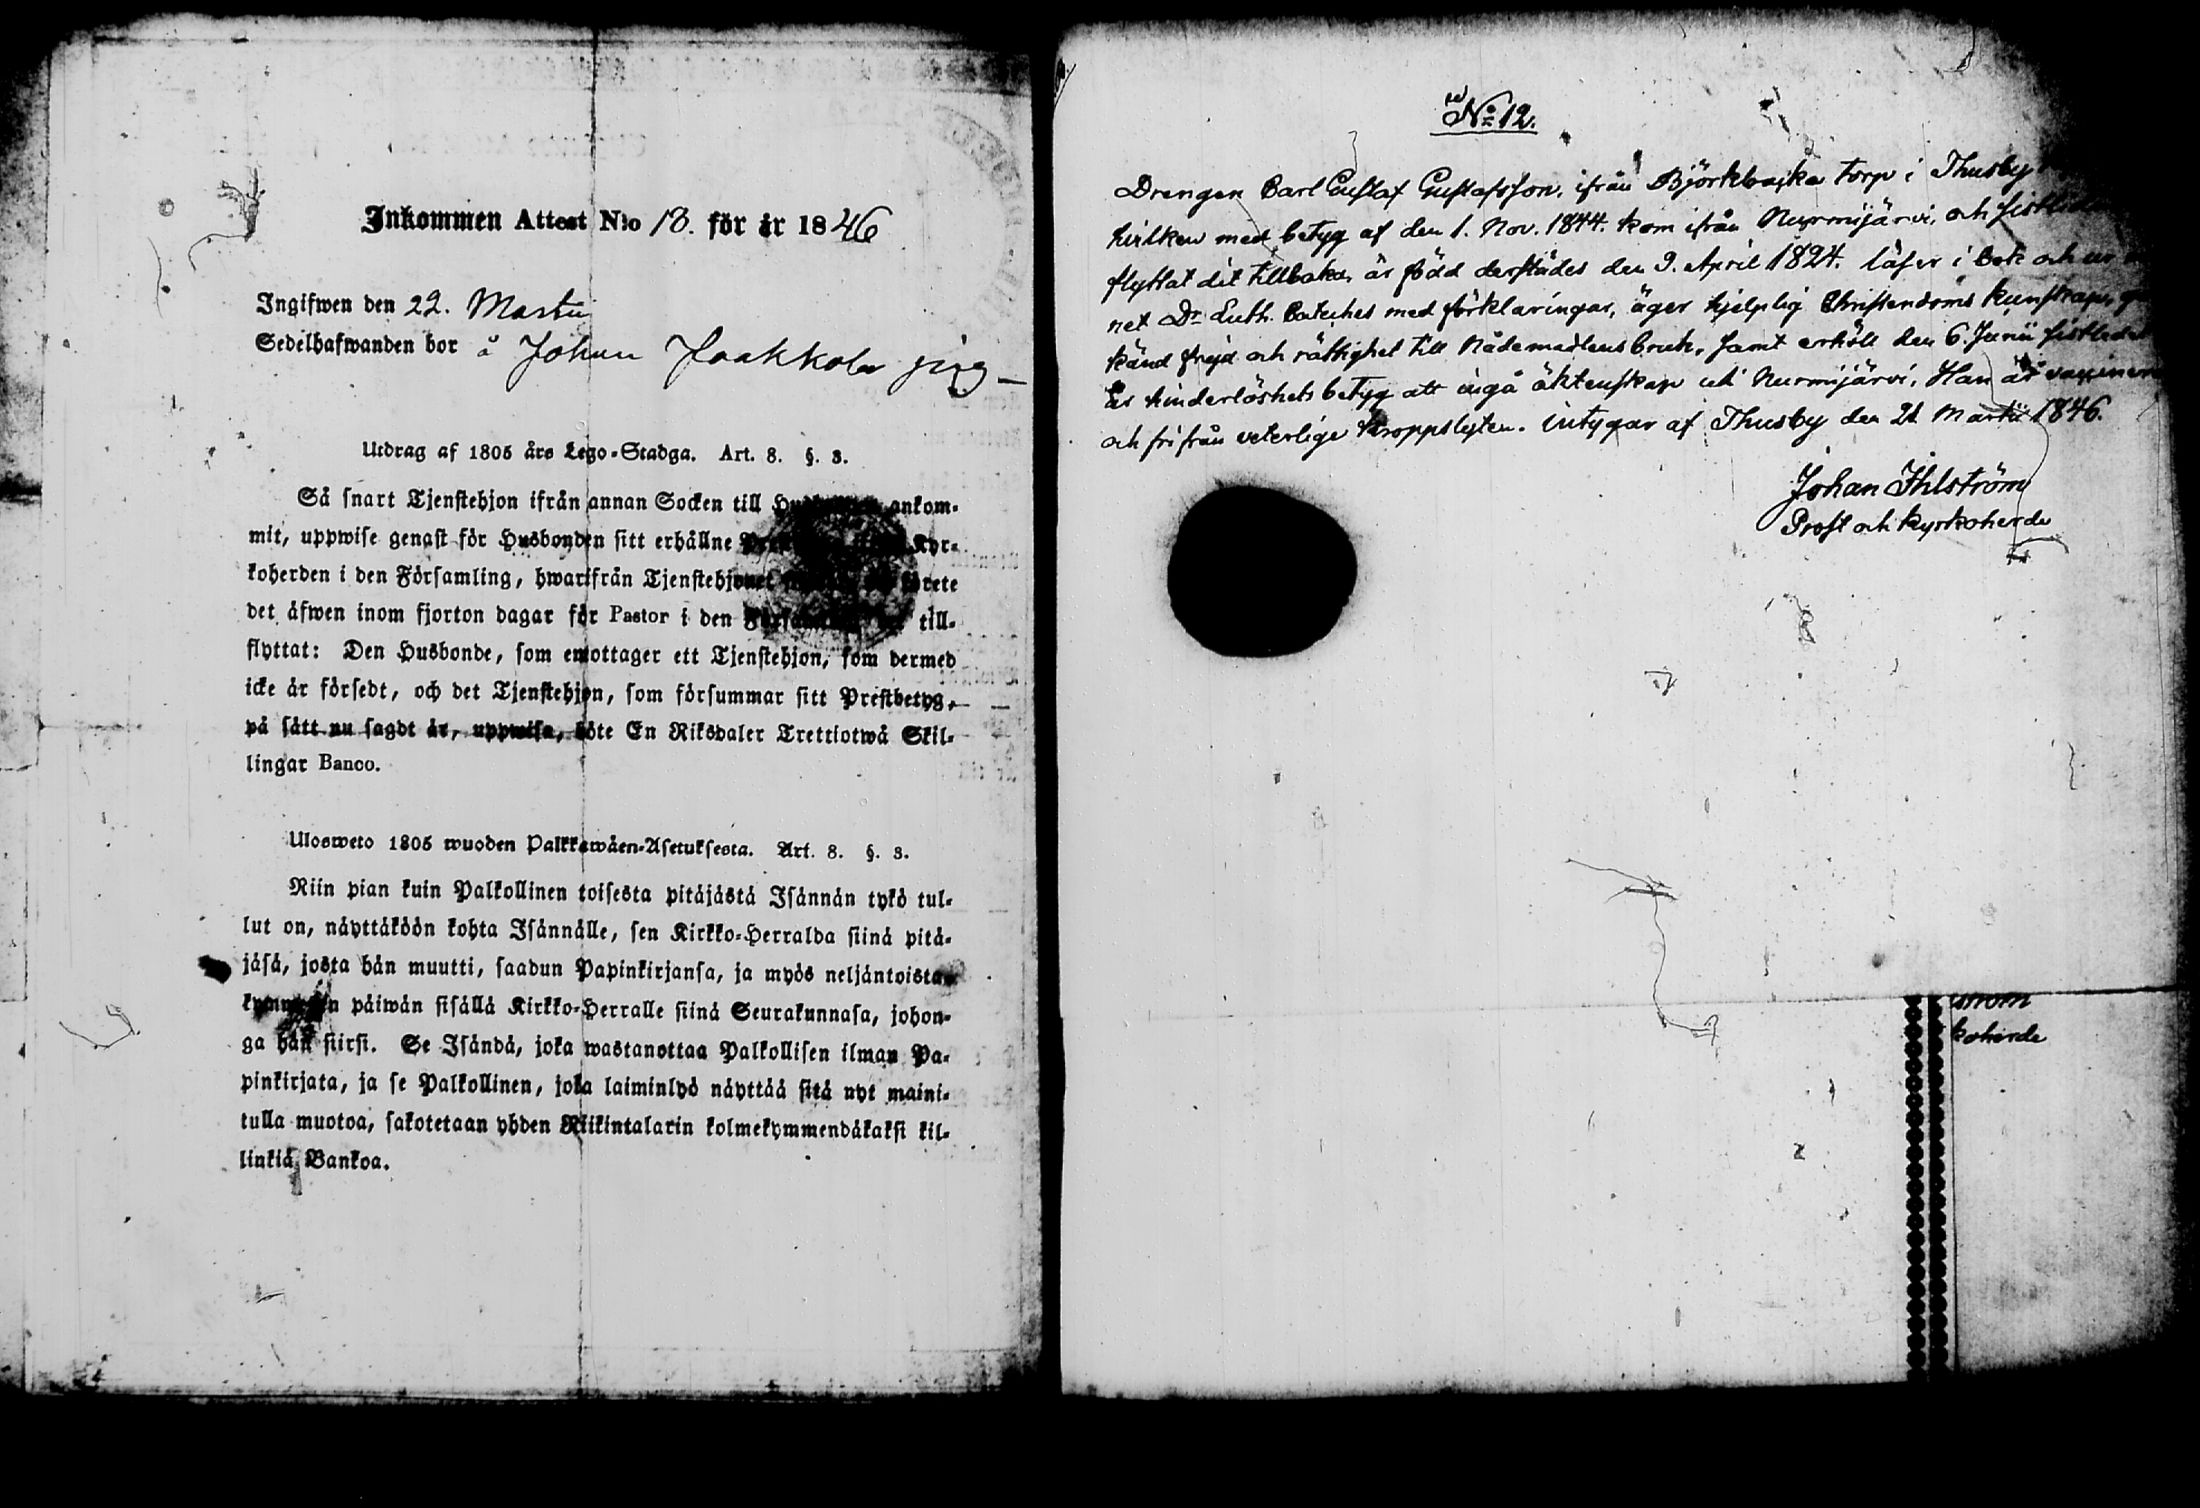 Inkommen Attest N:o 18. för år 1846
Ingifwen den 22. Martii
Sedelhafwanden bor å Johan Jaakkola
Utdrag af 1805 års Lego-Stadga. Art. 8. §. 3.
Så snart Tjenstehjon ifrån annan Socken till ankom-
mit, uppwise genast för Husbonden sitt erhållne Kyr-
koherden i den Församling, hwarifrån Tjenstehjonet
det äfwen inom fjorton dagar för Pastor i den till-
flyttat: Den Husbonde, som emottager ett Tjenstehjon, som dermed
icke är försedt, och det Tjenstehjon, som försummar sitt Prestbetyg,
på sätt nu sagdt är, uppwisa, böte En Riksdaler Trettiotwå Skil-
lingar Banco.
Ulosweto 1805 wuoden Palkkawäen-Asetuksesta. Art. 8. §. 3.
Niin pian kuin Palkollinen toisesta pitäjästä Isännän tykö tul-
lut on, näyttäköön kohta Isännälle, sen Kirkko-Herralda siinä pitä-
jäsä, josta hän muutti, saadun Papinkirjansa, ja myös neljäntoista-
päiwän sisällä Kirkko-Herralle siinä Seurakunnasa, johon-
ga hän siirsi. Se Isändä, joka wastanottaa Palkollisen ilman Pa-
pinkirjata, ja se Palkollinen, joka laiminlyö näyttää sitä nyt maini-
tulla muotoa, sakotetaan yhden Riikintalarin kolmekymmendäkaksi kil-
linkiä Bankoa.
No 12.
Drengen Carl Gustaf Gustafsson, ifrån Björkbacka torp i Thusby
hvilken med betyg af den 1. Nov. 1844. kom ifrån Nurmijärvi, och
flyttat dit tillbaka, är född derstädes den 9. April 1824. läser i Bok och
net Dr Luth. Catches med förklaringar, äger hjelplig Christendoms kunskap,
känd frejd och rättighet till Nådemedlens bruk, samt erhöll den 6. Junii
års hinderlöshets betyg att ingå äktenskap uti Nurmijärvi. Han är
och fri från veterlige kroppslyten. intygar af Thusby den 21 Martii 1846.
Johan Ihlström
Prost och Kyrkoherde
ström
koherde